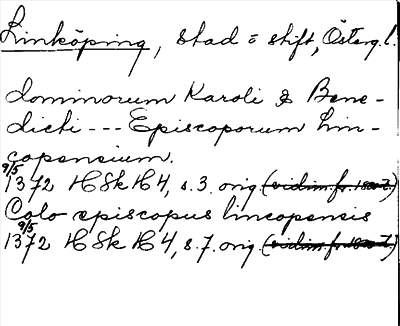 Linköping, stad o stift, Österg. l.
dominorum Karoli & Bene-
dicti --- Episcoporum Lin-
copensium.
9/5 1372 HSk H4, s. 3. orig. (vidim. fr.
Colo episcopus lincopensis
9/5 1372 HSk H4, s. 7. orig. (vidim. fr.